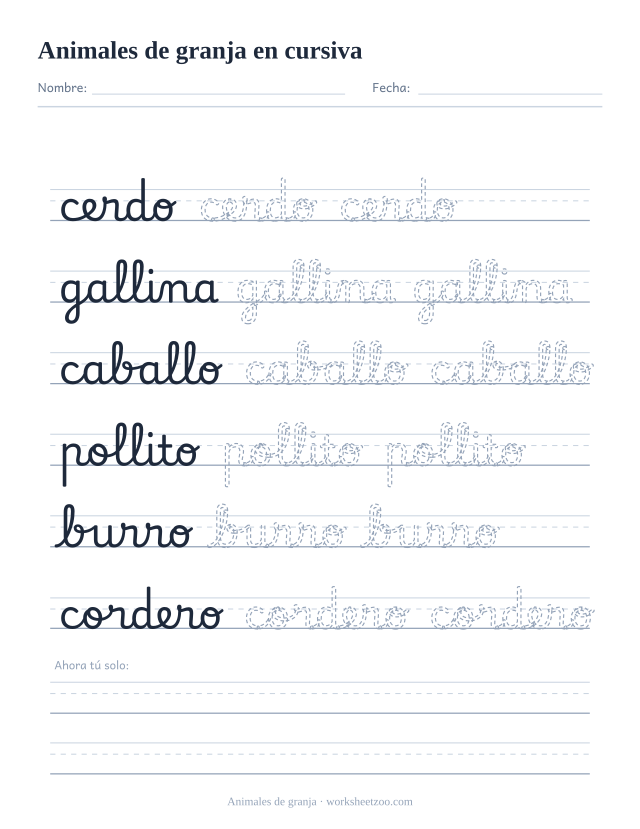 Animales de granja en cursiva
Nombre: Fecha:
cerdo cerdo cerdo
gallina gallina gallina
caballo caballo caballo
pollito pollito pollito
burro burro burro
cordero cordero cordero
Ahora tú solo:
Animales de granja · worksheetzoo.com